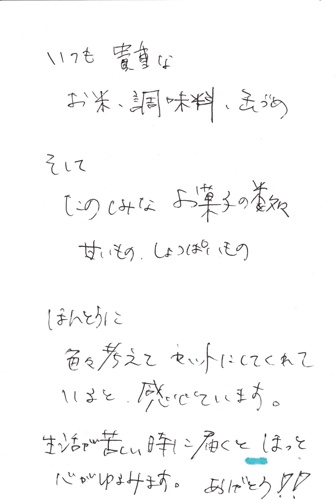 いつも 貴重な
お米、調味料、缶づめ
そして
たのしみな お菓子の数々
甘いもの、しょっぱいもの
ほんとうに
色々考えて セットにしてくれて
いると 感じています。
生活が苦しい時に届くと ほっと
心がゆるみます。 ありがとう!!